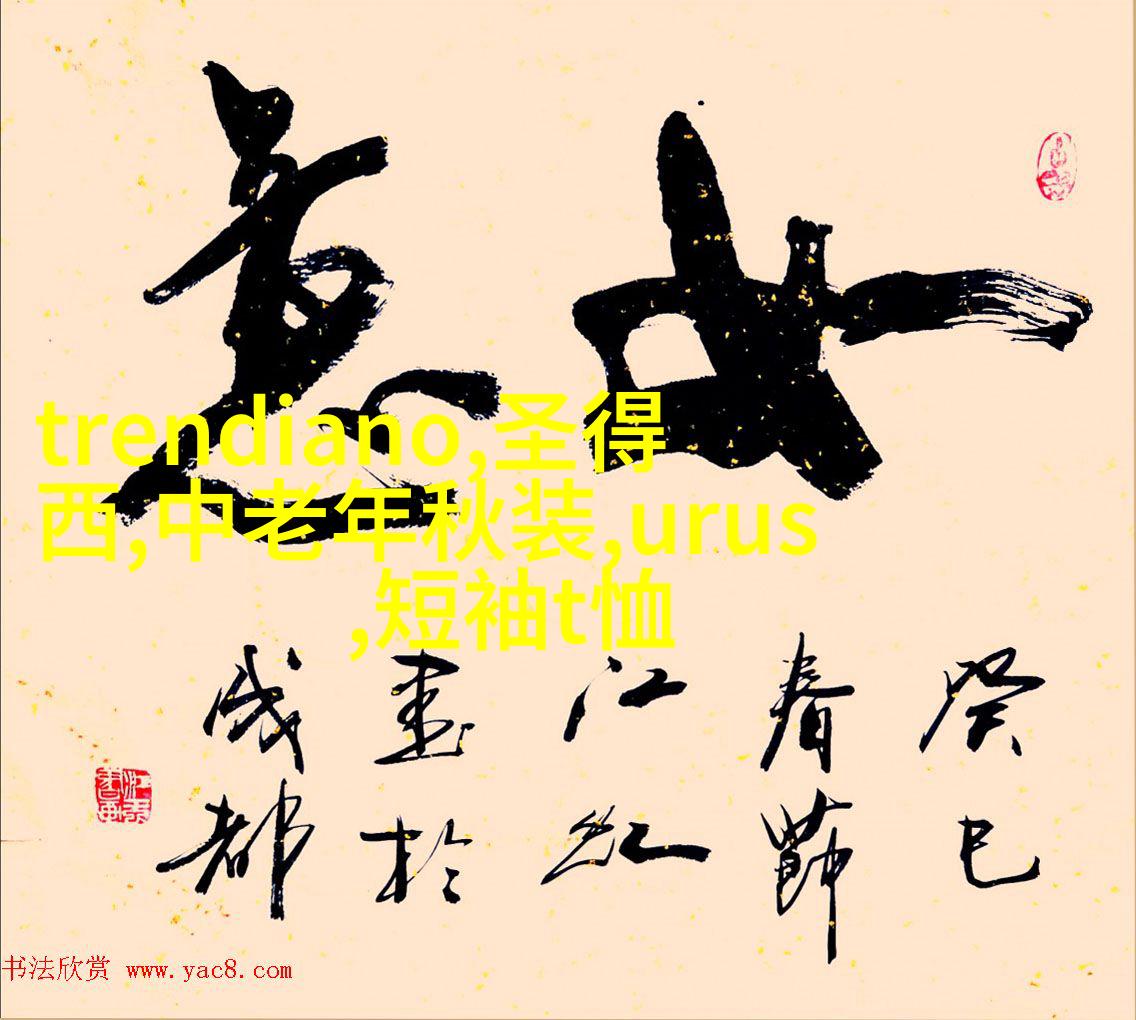 如意
癸巳
春節
江紅
書於
成都
trendiano,圣得
西,中老年秋装,urus
,短袖t恤
书法欣赏 www.yac8.com